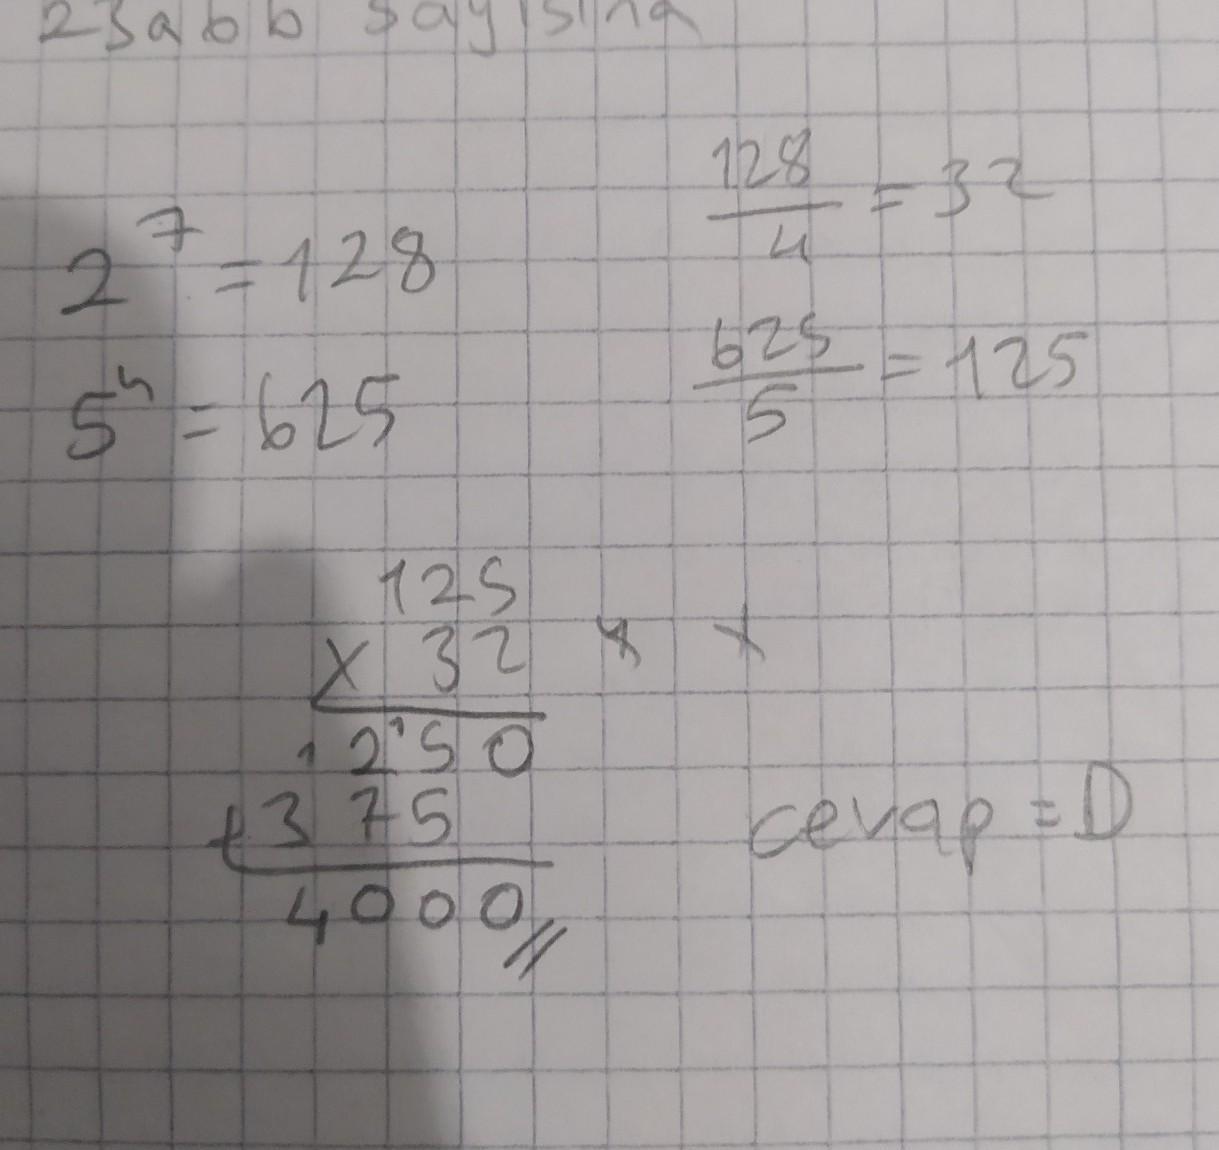 23abb sayısına
2^7 = 128
5^4 = 625
128/4 = 32
625/5 = 125
125
x 32 x x
1250
+375
4000
cevap = D